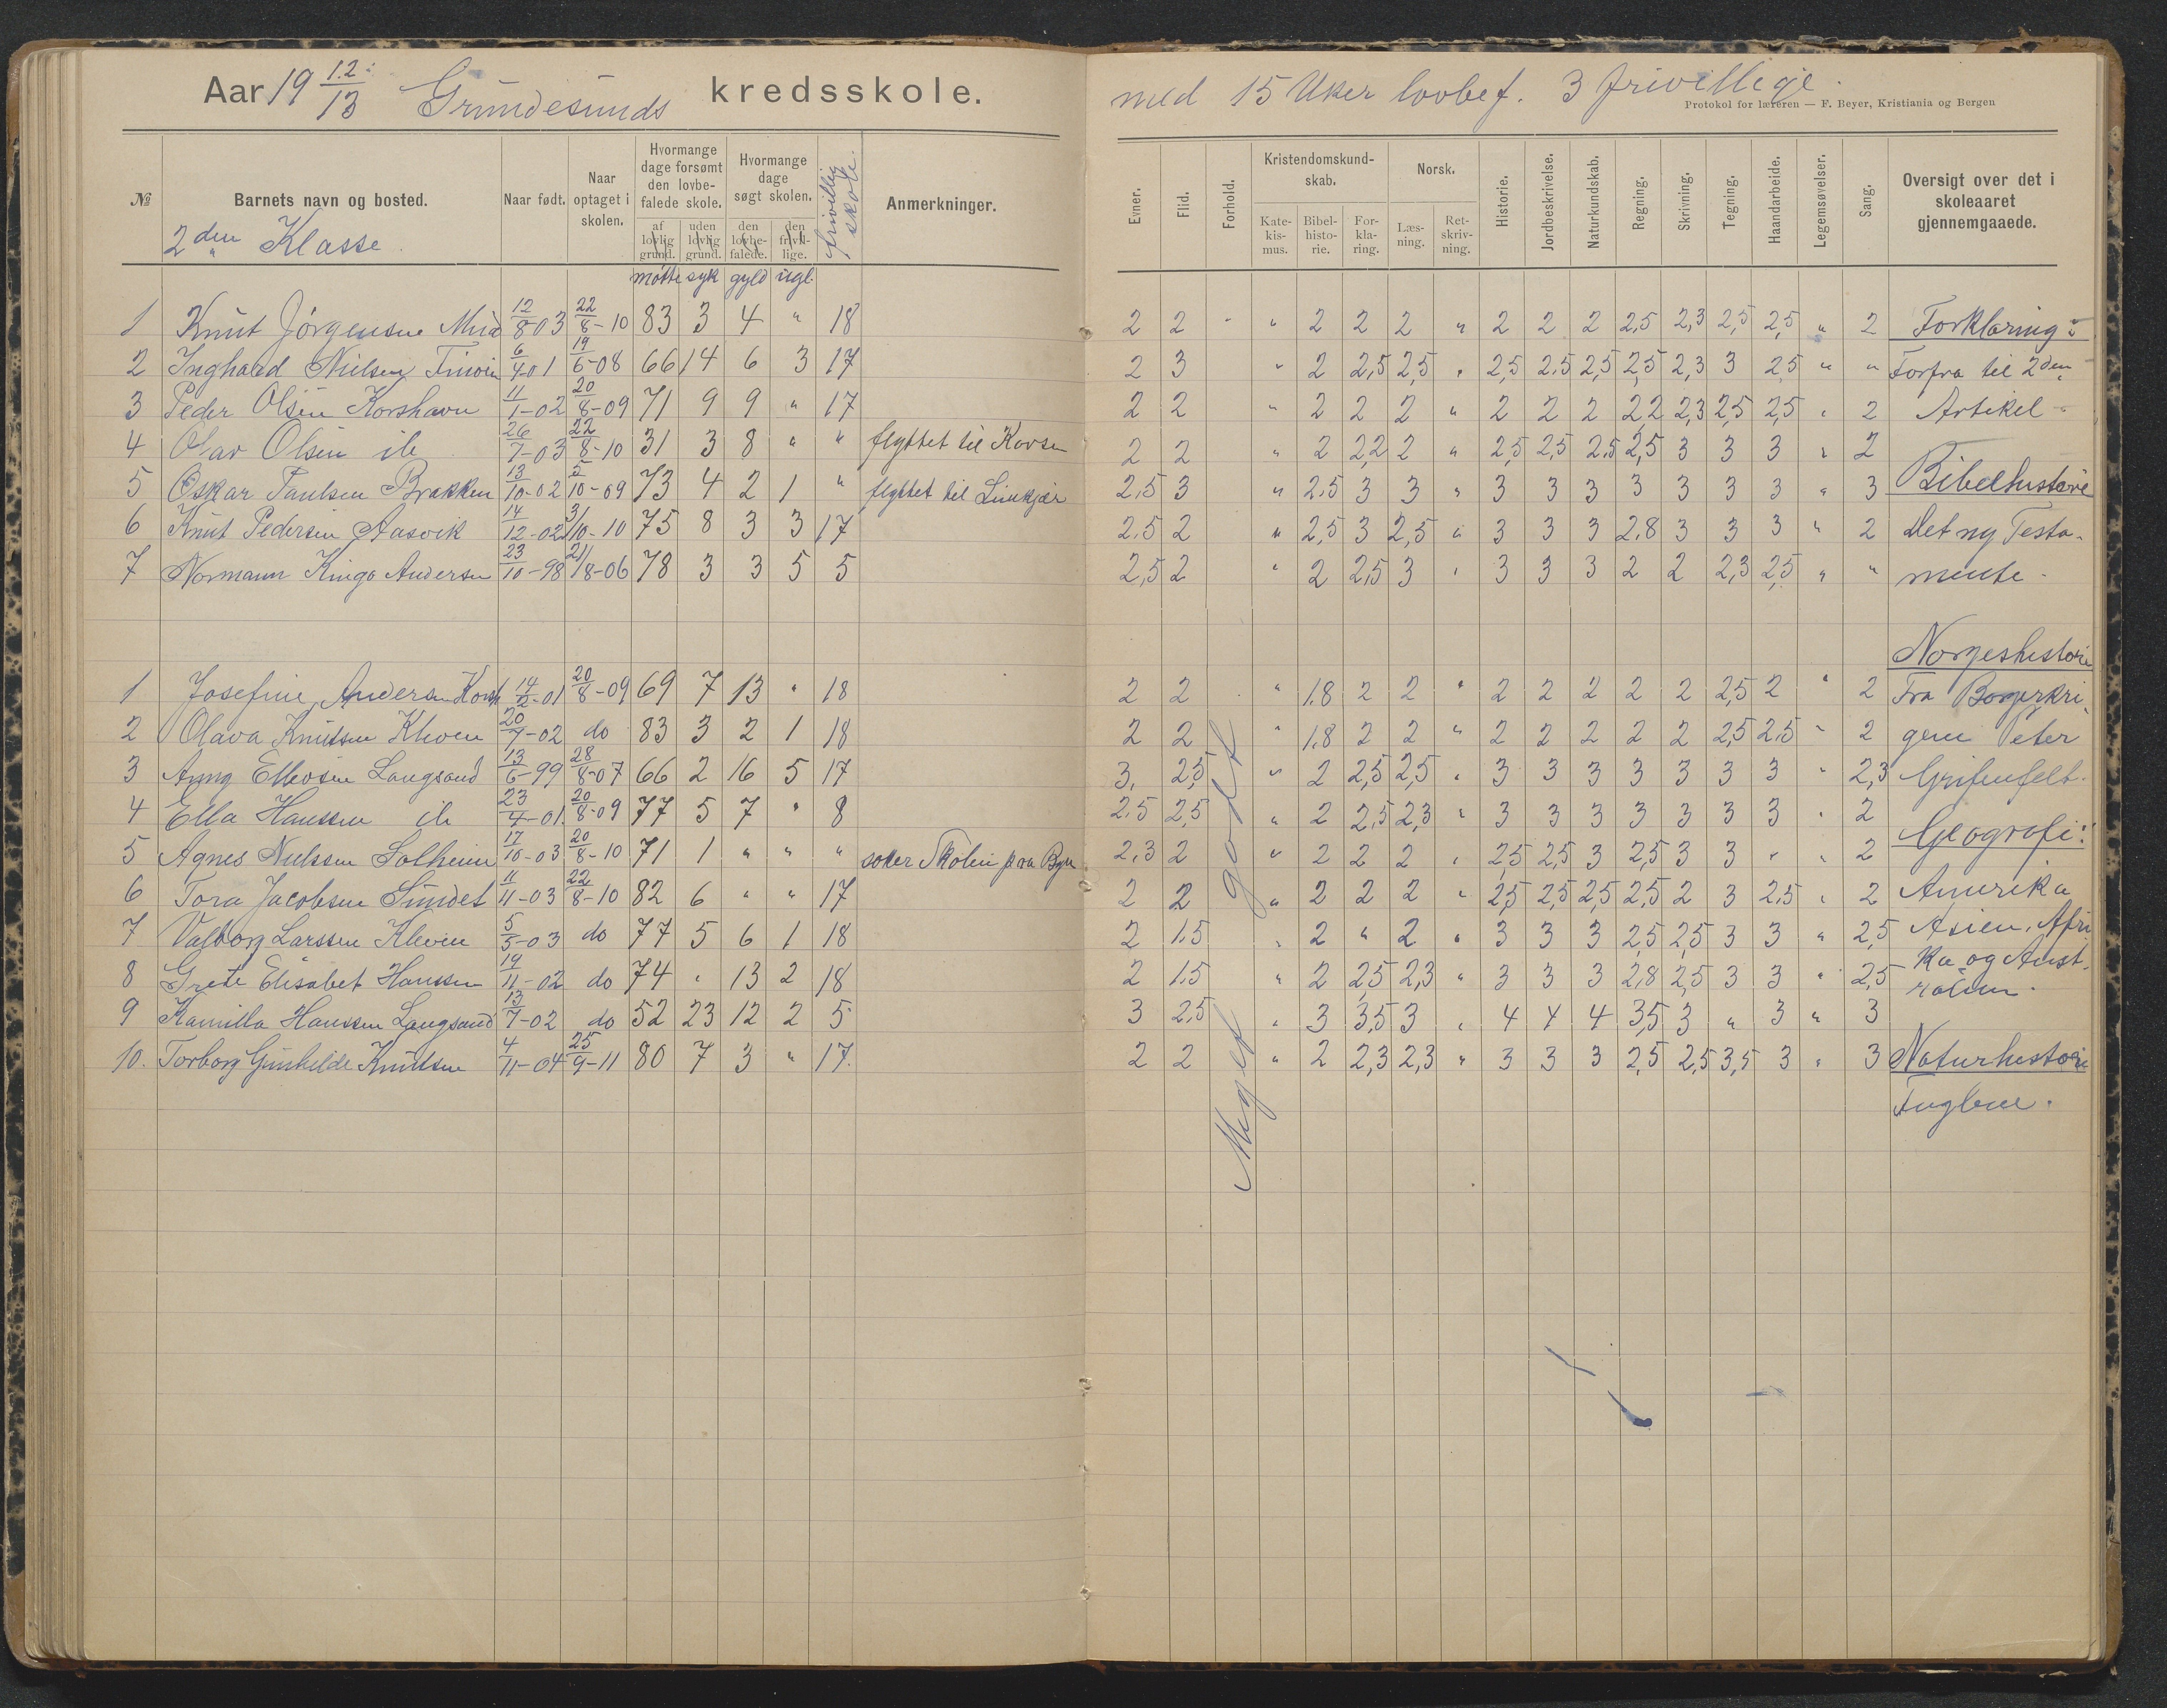 Aar 19 12/13 Grundesunds kredsskole.
med 15 Uker lovbef. 3 frivillige.
Protokol for læreren — F. Beyer, Kristiania og Bergen
№ Barnets navn og bosted. Naar født. Naar optaget i skolen. Hvormange dage forsømt den lovbefalede skole. af lovlig grund. uden lovlig grund. Hvormange dage søgt skolen. den lovbefalede. den frivillige. frivillig skole. Anmerkninger.
Evner. Flid. Forhold. Kristendomskundskab. Katekismus. Bibelhistorie. Forklaring. Norsk. Læsning. Retskrivning. Historie. Jordbeskrivelse. Naturkundskab. Regning. Skrivning. Tegning. Haandarbeide. Legemsøvelser. Sang. Oversigt over det i skoleaaret gjennemgaaede.
2den Klasse.
møtte syk gyld ugl.
1 Knut Jørgensen 12/8 03 22/8-10 83 3 4 " 18
2 Nilsen 6/4-01 19/6-08 66 14 6 3 17
3 Peder Olsen Korshavn 11/1-02 20/8-09 71 9 9 " 17
4 Olav Olsen ib 26/7-03 22/8-10 31 3 8 " " flyttet til
5 Oskar Paulsen Brakken 13/10-02 5/10-09 73 4 2 1 " flyttet til
6 Knut Pedersen Aasvik 14/12-02 3/10-10 75 8 3 3 17
7 Normann Kinga Andersen 23/10-98 21/8-06 78 3 3 5 5
1 Josefine Andersen Korsh 14/2-01 20/8-09 69 7 13 " 18
2 Olava Knutsen Kleven 20/7-02 do 83 3 2 1 18
3 Anna Ellevsen Langsand 13/6-99 28/8-07 66 2 16 5 17
4 Ella Hanssen ib 23/4-01 20/8-09 77 5 7 " 8
5 Agnes Nielssen Solheim 17/10-03 20/8-10 71 1 " " " søker Skolen paa Byen
6 Tora Jacobsen Sundet 11/11-03 22/8-10 82 6 " " 17
7 Valborg Larssen Kleven 5/5-03 do 77 5 6 1 18
8 Grete Elisabet Hanssen 19/11-02 do 74 " 13 2 18
9 Kamilla Hanssen Langsand 13/7-02 do 52 23 12 2 5
10. Torborg Gunhilde Knutsen 4/11-04 25/9-11 80 7 3 " 17.
2 2 " " 2 2 2 " 2 2 2 2,5 2,3 2,5 2,5 " 2 Forklaring:
2 3 " 2 2,5 2,5 " 2,5 2,5 2,5 2,5 2,3 3 2,5 " " Forfra til 2den
2 2 " 2 2 2 " 2 2 2 2,2 2,3 2,5 2,5 " 2 Artikel
2 2 " 2 2,2 2 " 2,5 2,5 2,5 2,5 3 3 3 " 2
2,5 3 " 2,5 3 3 " 3 3 3 3 3 3 3 " 3 Bibelhistorie
2,5 2 " 2,5 3 2,5 " 3 3 3 2,8 3 3 3 " 2 Det ny Testa-
2,5 2 " 2 2,5 3 " 3 3 3 2 2 2,3 2,5 " " mente.
Norgeshistorie
2 2 " 1.8 2 2 " 2 2 2 2 2 2,5 2 " 2 Fra Borgerkri-
2 2 " 1.8 2 2 " 2 2 2 2 2 2,5 2,5 " 2 gene Peter
3. 2,5 " 2 2,5 2,5 " 3 3 3 3 3 3 3 " 2,3 Grifenfelt.
2,5 2,5 " 2 2,5 2,3 " 3 3 3 3 3 3 3 " 2
2,3 2 " 2 2 2 " 2,5 2,5 3 2,5 3 3 " " 2 Geografi:
2 2 " 2 2 2 " 2,5 2,5 2,5 2,5 2 3 2,5 " 2 Amerika
2 1.5 " 2 " 2 " 3 3 3 2,5 2,5 3 3 " 2,5 Asien, Afri
2 1.5 " 2 2,5 2,3 " 3 3 3 2,8 2,5 3 3 " 2,5 ka og Aust-
ralien.
3 2,5 " 3 3,5 3 " 4 4 4 3,5 3 " 3 " 3
2 2 " 2 2,3 2,3 " 3 3 3 2,5 2,5 3,5 3 " 3 Naturhistorie
Fuglene.
Meget godt